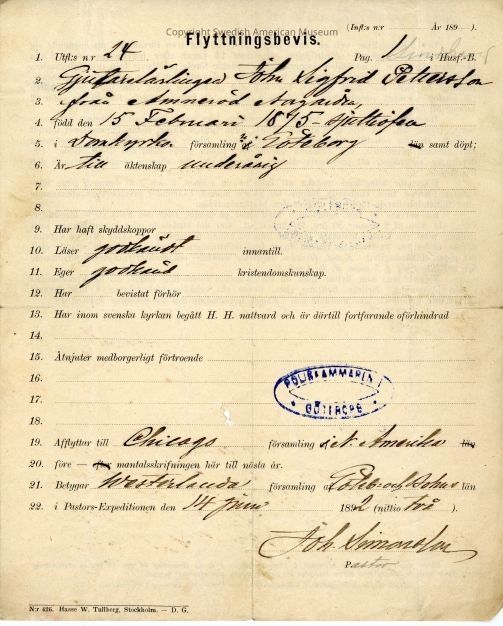 Copyright Swedish American Museum
(Infl:s n:r År 189 )
Flyttningsbevis.
1. Utfl:s n:r 24 Pag. 1 i Husf.-B.
2. Gjutarelärlingen John Sigfrid Petersson
3. från Ammeröd
4. född den 15 Februari 1875
5. i Domkyrko församling af Göteborg län samt döpt;
6. Är till äktenskap underårig
7.
8.
9. Har haft skyddskoppor
10. Läser godkändt innantill.
11. Eger godkänd kristendomskunskap.
12. Har bevistat förhör
13. Har inom svenska kyrkan begått H. H. nattvard och är dertill fortfarande oförhindrad
14.
15. Åtnjuter medborgerligt förtroende
16.
17.
POLISKAMMAREN I GÖTEBORG
18.
19. Afflyttar till Chicago församling i N. Amerika län
20. före — efter mantalsskrifningen här till nästa år.
21. Betygar Westerlanda församling af Göteb. och Bohus län
22. i Pastors-Expeditionen den 14 juni 1892 (nittio två ).
Joh. Simonson
Pastor
N:r 426. Hasse W. Tullberg, Stockholm. — D. G.